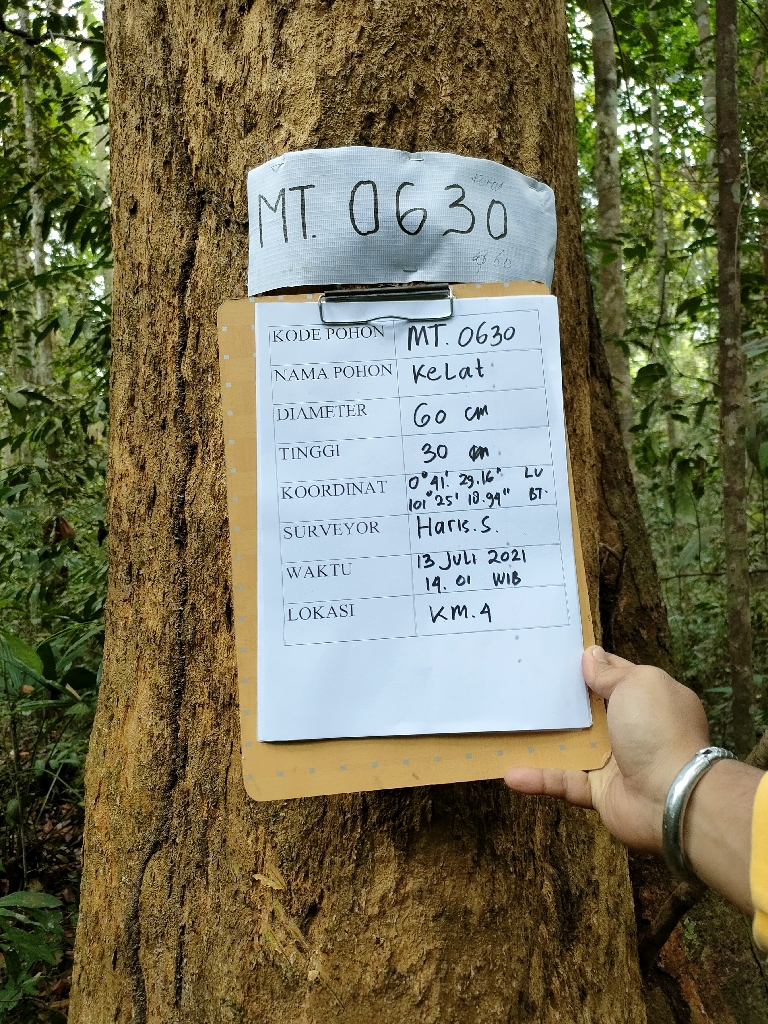 MT. 0630
KODE POHON MT. 0630
NAMA POHON KeLat
DIAMETER 60 cm
TINGGI 30 m
KOORDINAT 0° 41' 29.16" LU
101° 25' 18.94" BT.
SURVEYOR Haris.S.
WAKTU 13 Juli 2021
14. 01 WIB
LOKASI KM. 4